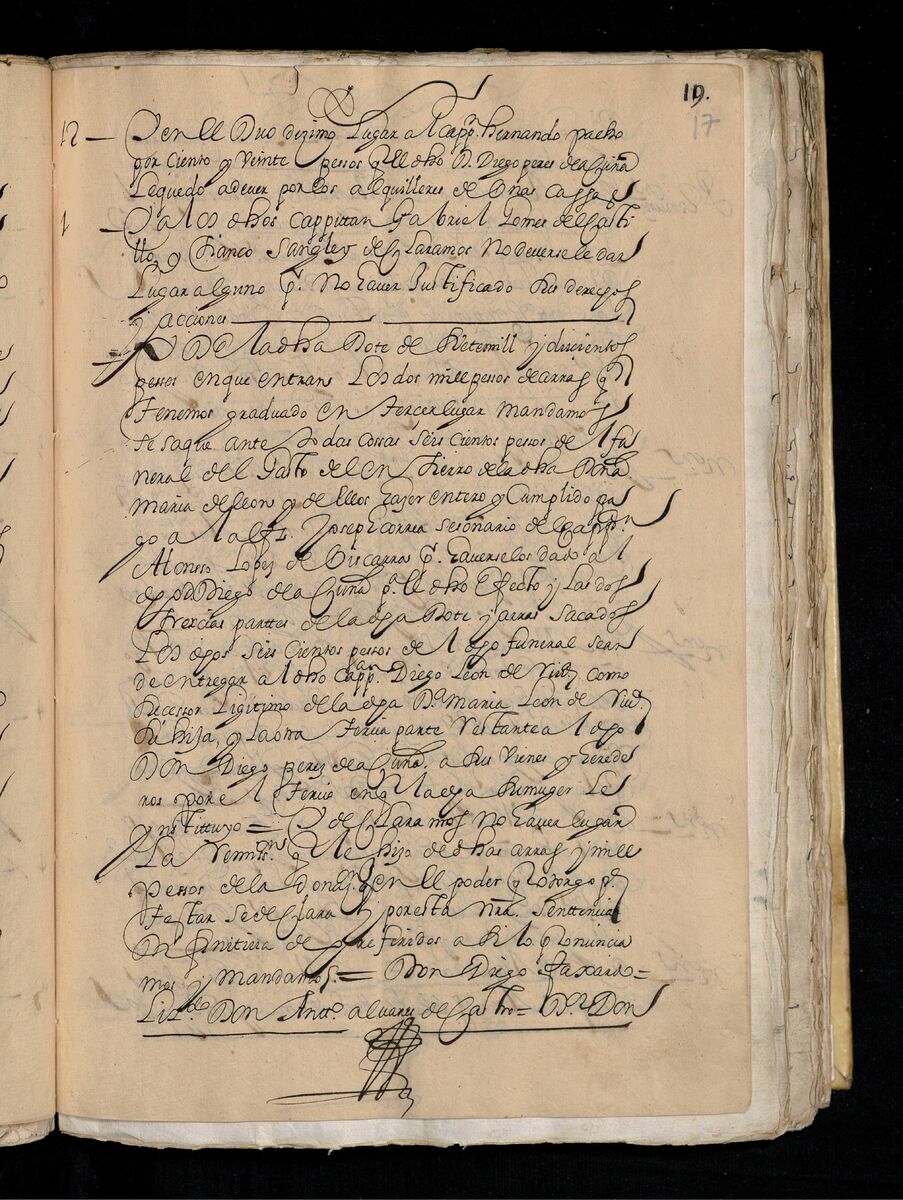 19.
17
12 — Y en ell Duo dezimo Lugar a l Capp.n Hernando pacho
por Ciento y Veinte pessos q̃ ell dho D. Diego peres de acuña
Lequedo a dever por los alquilleres de Unas cassas
1 — Y a los dhos Cappittan Gabriel Gomes del Casti
llo, y Chanco Sangley declaramos No deversele dar
Lugar alguno p.r No haver Justificado sus derechos
y acciones
Y De la dha Dote de sietemill y duscientos
pessos en que entran Los dos mill pessos de arras q̃
Tenemos graduado en Tercer lugar mandamos
se saque ante todas cossas seis cientos pessos de l fu
neral del Gasto del en tierro de la dha Doña
Maria de lleon y de Ellos hazer entero y Cumplido pa
go a l alf.s Joseph Correa sesonario del Capp.n
Alonsso Lopez de Discarra p.r haverselos dado a l
dho D. Diego de la Cuña p.a ell dho Efecto y Las dos
Trexias parttes de la dha Dote y arras sacados
Los dhos seis Cientos pessos de l dho funeral sean
de entregar a l dho Capp.an Diego Leon de
como
subcessor Ligitimo de la dha D.a Maria Leon de
su hija, y La otra Tercia parte Restante a l dho
Don Diego perez de a Cuña. a sus Vienes y herede
ros por e l Tercio en q̃ la dha su muger Le
ynstittuyo = Y declaramos No haver lugar
La q̃ le hizo de dhas arras y mill
pessos de la en ell poder q̃ otorgo p.a
Testar se declara y por esta nra. senttencia
Difinitiva de grados preferidos assi lo pronuncia
mos y mandamos = Don Diego Faxardo =
Liz.do Don Antt.o alvarez de Castro = D.r Don